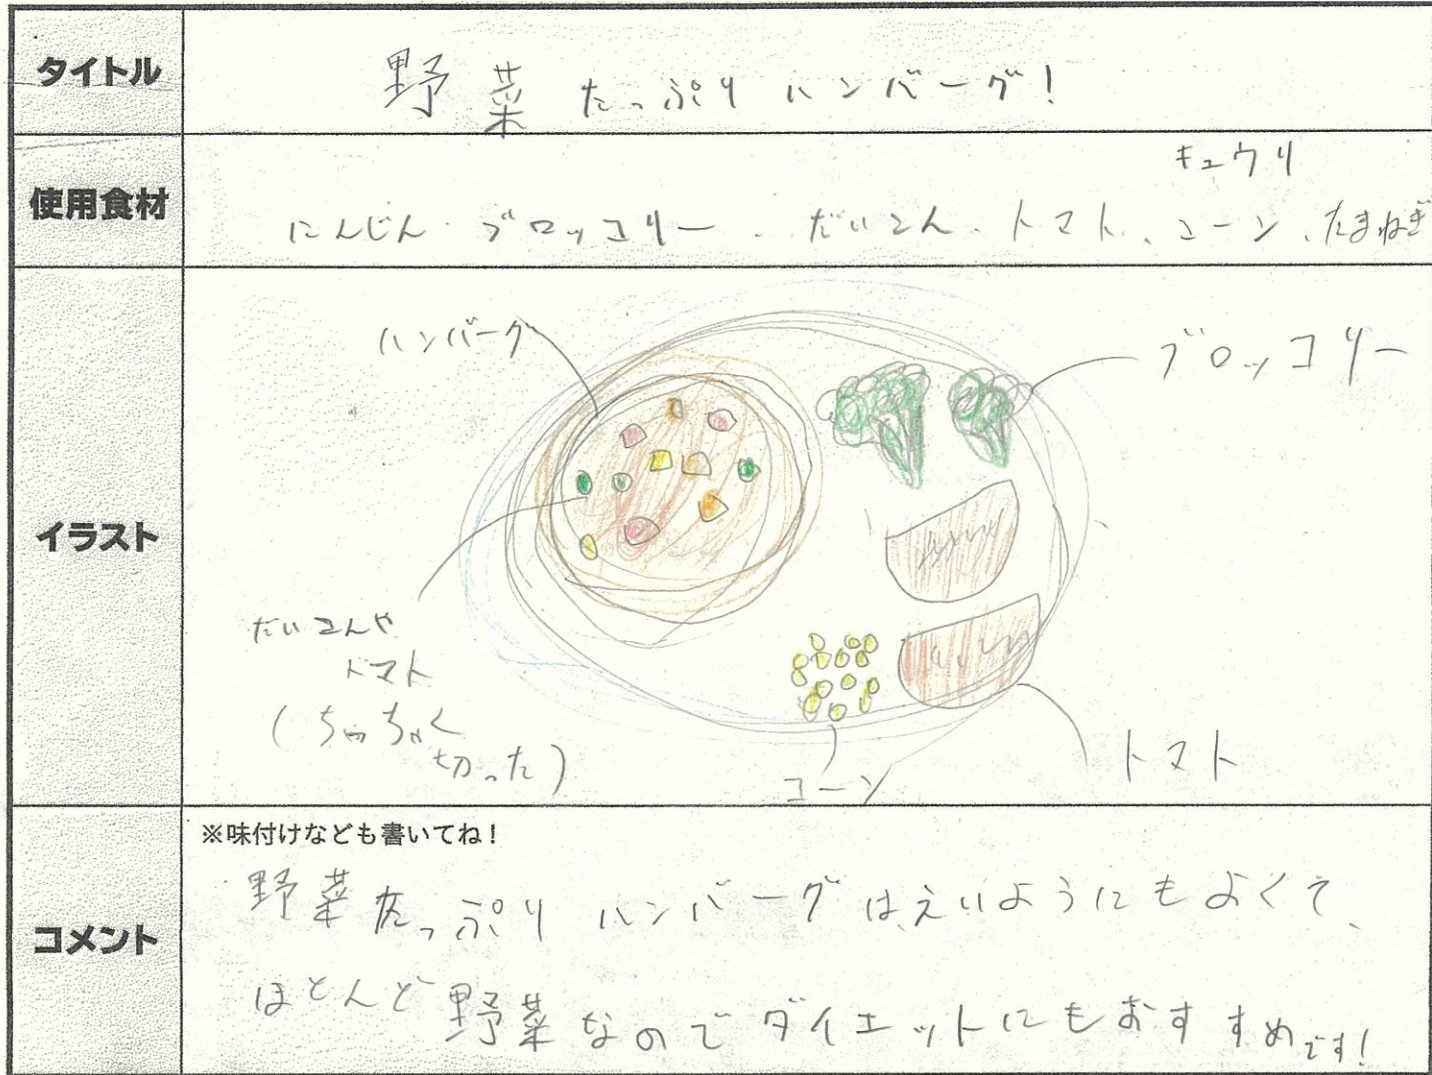 タイトル
野菜たっぷりハンバーグ!
使用食材
キュウリ
にんじん・ブロッコリー・だいこん、トマト、コーン、たまねぎ
イラスト
ハンバーグ
ブロッコリー
だいこんや
トマト
(ちっちゃく
切った)
コーン
トマト
コメント
※味付けなども書いてね!
野菜たっぷりハンバーグは、えいようにもよくて、
ほとんど野菜なのでダイエットにもおすすめです!